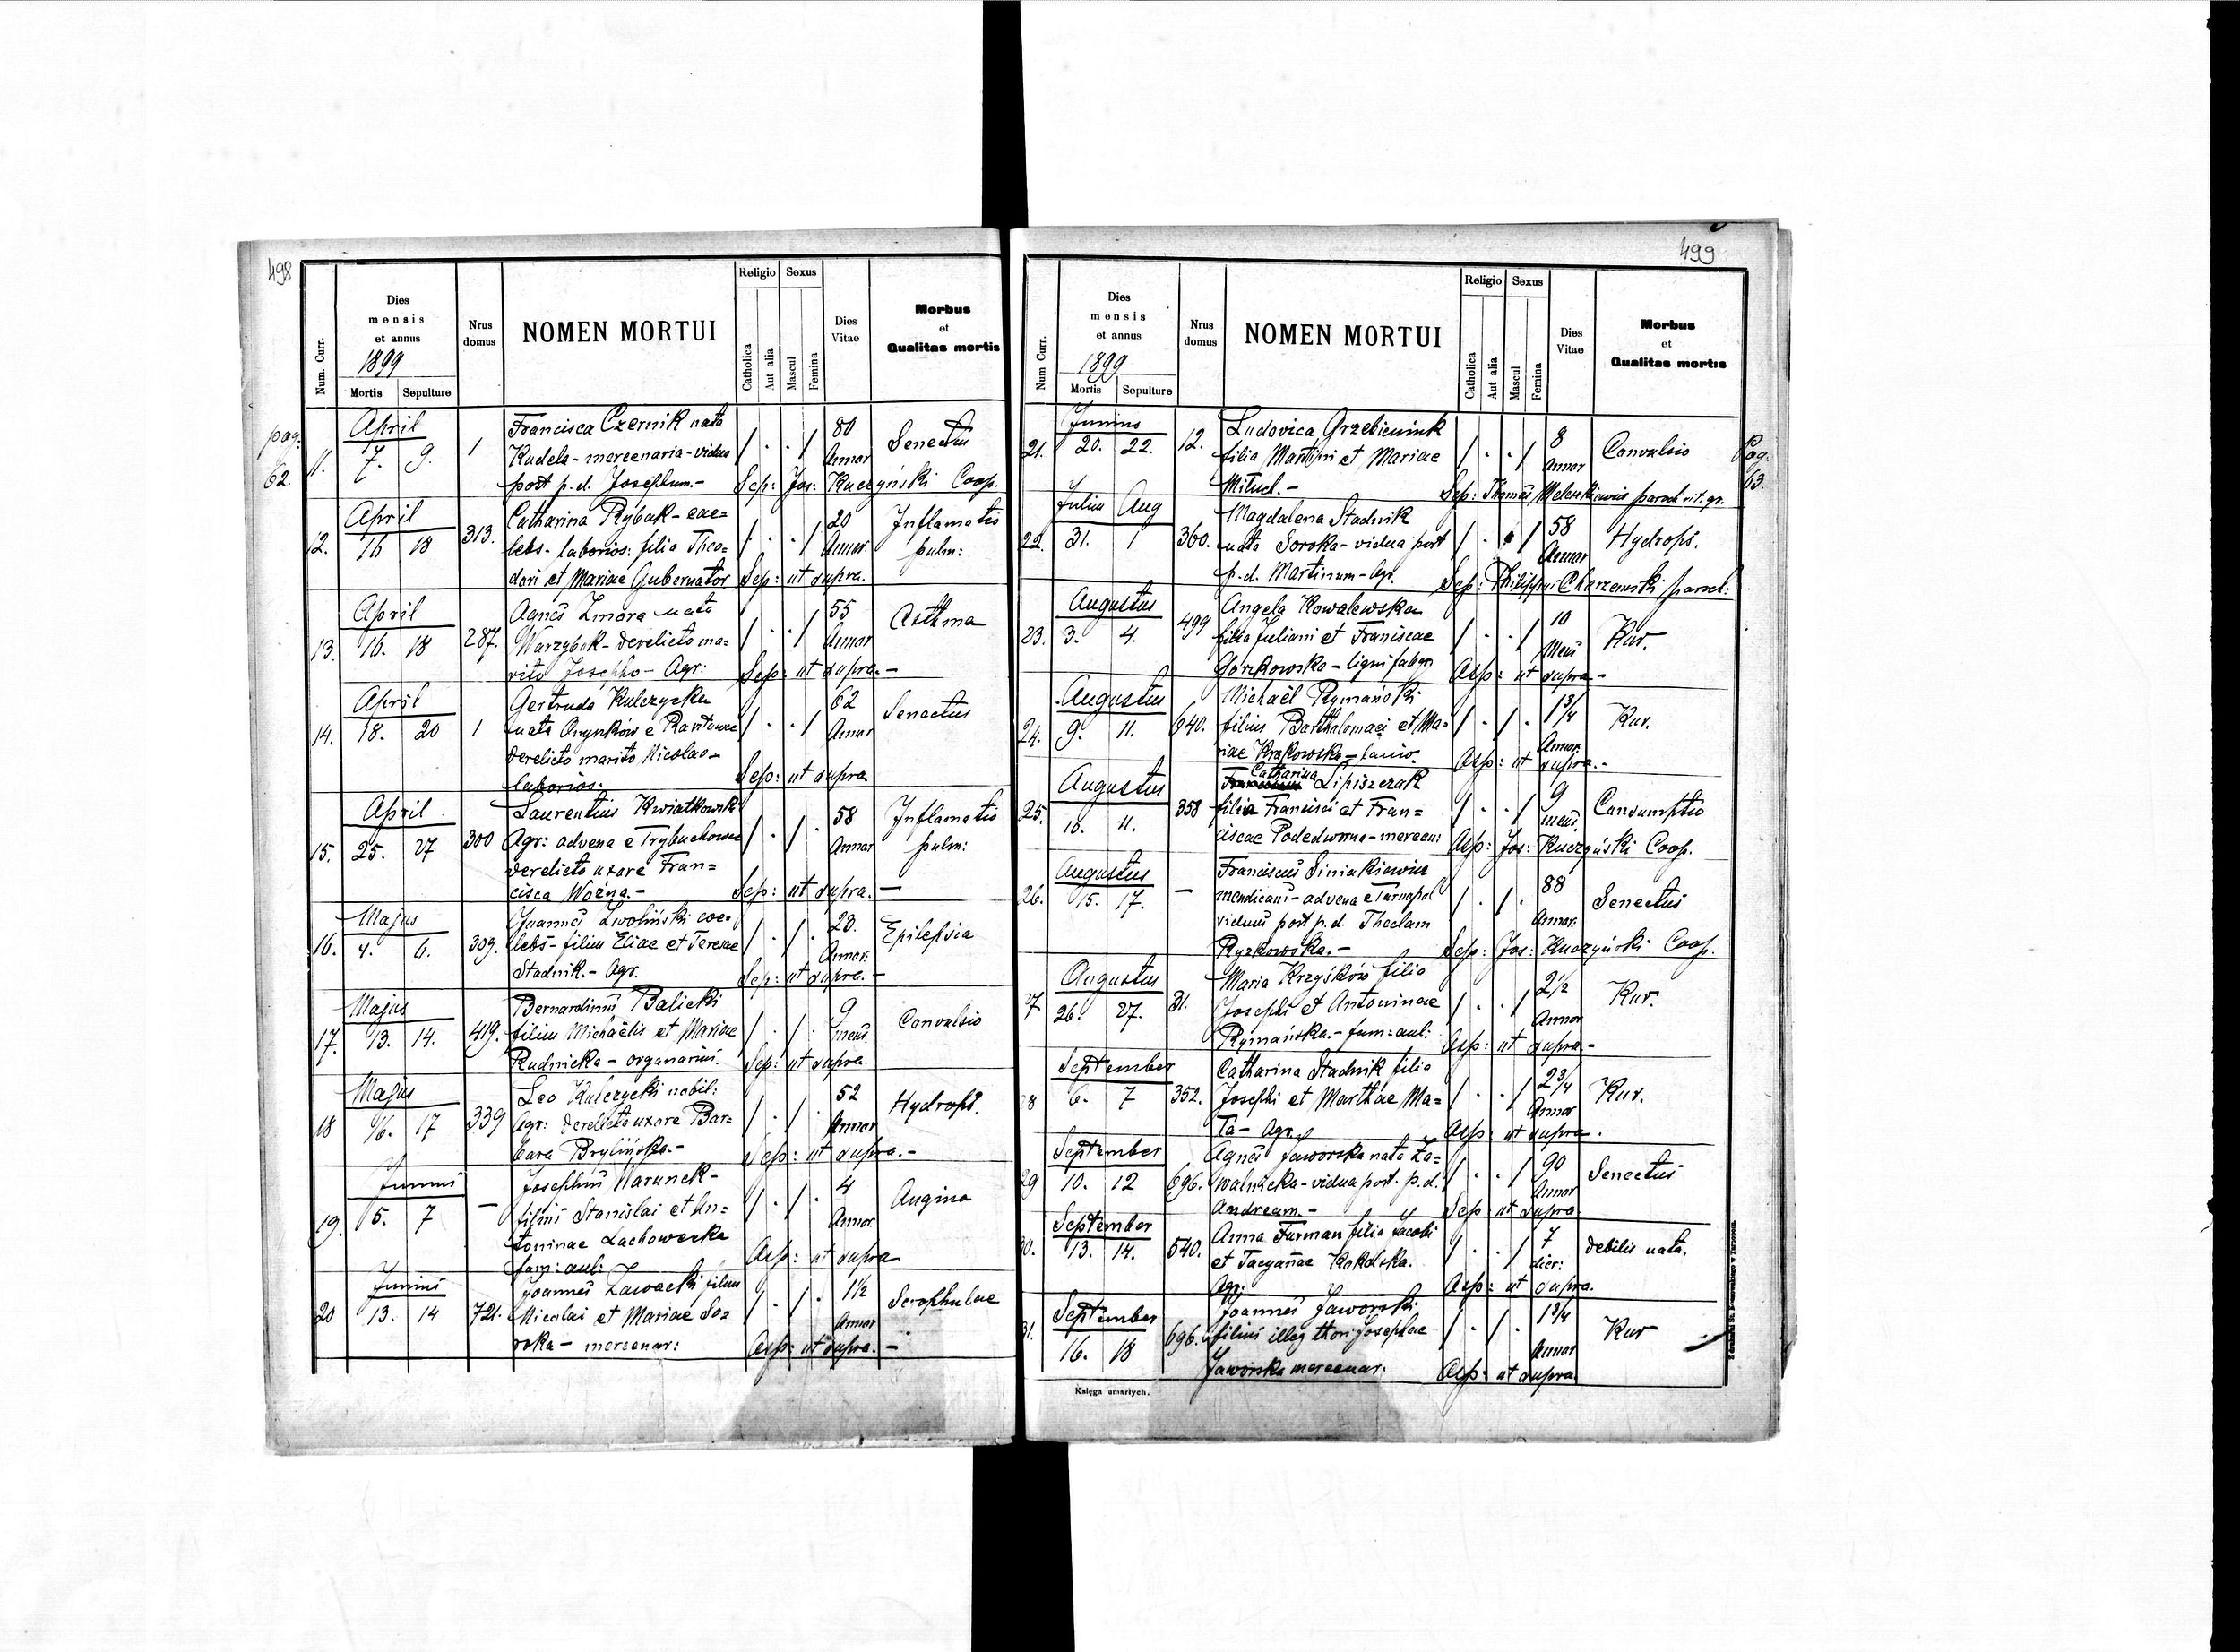 498
Num. Curr.
Dies
mensis
et annus
1899
Mortis
Sepulture
Nrus
domus
NOMEN MORTUI
Religio
Catholica
Aut alia
Sexus
Mascul
Femina
Dies
Vitae
Morbus
et
Qualitas mortis
pag.
62.
11.
April
7. 9.
1
Francisca Czernik nata
Kudela - mercenaria - vidua
post p.d. Josephum. -
80
Annor
Senectus
Sep: Jos: Kuczyński Coop.
12.
April
16 18
313.
Catharina Rybak - cae=
lebs - laborios: filia Theo=
dori et Mariae Gubernator
20
Annor.
Inflamatio
pulm:
Sep: ut supra.
13.
April
16. 18
287.
Agnes Zmora nata
Warzybok - derelicto ma=
rito Josepho - Agr:
55
Annor
Asthma
Sep: ut supra. -
14.
April
18. 20
1
Gertruda Kulczycka
nata
derelicto marito Nicolao -
laborios.
62
Annor
Senectus
Sep: ut supra
15.
April
25. 27
300
Laurentius Kwiatkowski
Agr: advena e Trybuchowce
derelicta uxore Fran=
cisca Woźna. -
58
Annor
Inflamatio
pulm:
Sep: ut supra. -
16.
Majus
4. 6.
309.
Joannes Zwoliński coe=
lebs - filius Eliae et Teresae
Stadnik. - Agr.
23.
Annor.
Epilepsia
Sep: ut supra. -
17.
Majus
13. 14.
419.
Bernardinus Balicki
filius Michaëlis et Mariae
Rudnicka - organarius.
9
mens.
Convulsio
Sep: ut supra.
18
Majus
16. 17
339
Leo Kulczycki nobil:
Agr: derelicta uxore Bar=
bara Brylińska. -
52
Annor
Hydrops.
Sep: ut supra. -
19.
Junius
5. 7
-
Josephus Warunek -
filius Stanislai et An=
toninae Lachowska
fam: aul:
4
Annor.
Angina
Asp: ut supra
20
Junius
13. 14
721.
Joannes Zawacki filius
Nicolai et Mariae So=
roka - mercenar:
1 1/2
Annor
Scrophulae
Asp: ut supra. -
499
Num Curr.
Dies
mensis
et annus
1899
Mortis
Sepulture
Nrus
domus
NOMEN MORTUI
Religio
Catholica
Aut alia
Sexus
Mascul
Femina
Dies
Vitae
Morbus
et
Qualitas mortis
Pag.
63.
21.
Junius
20. 22.
12.
Ludovica Grzebieniuk
filia Martini et Mariae
Mituch. -
8
Annor
Convulsio
Sep: Thomas paroch rit. gr.
22.
Julius Aug
31. 1
360.
Magdalena Stadnik
nata Soroka - vidua post
p.d. Martinum - Agr.
58
Annor
Hydrops.
Sep: Philippus Charzewski paroch:
23.
Augustus
3. 4.
499
Angela Kowalewska
filia Juliani et Franiscae
Gorzkowska - ligni fabgri
10
Mens
Kur.
Asp: ut supra -
24.
Augustus
9. 11.
640.
Michaël Rymański
filius Barthalomaei et Ma=
riae Krakowska - lanio.
1 3/4
Annor.
Kur.
Asp: ut supra. -
25.
Augustus
10. 11.
358
Catharina Lipiszczak
filia Francisci et Fran=
ciscae Podedworna - mercen:
9
mens.
Consumptio
Asp: Jos: Kuczyński Coop.
26.
Augustus
15. 17.
-
Franciscus Siniakiewicz
mendicans - advena e Tarnopol
viduus post p.d. Theclam
Ryzkowska. -
88
Annor.
Senectus
Sep: Jos: Kuczyński Coop.
27
Augustus
26. 27.
31.
Maria Krzyśków filia
Josephi et Antoninae
Rymańska. - fam: aul:
2 1/2
Annor
Kur.
Asp: ut supra -
28
September
6. 7
352.
Catharina Stadnik filia
Josephi et Marthae Ma=
ta - Agr.
2 3/4
Annor
Kur.
Asp: ut supra.
29
September
10. 12
696.
Agnes Jaworska nata Za=
walnicka - vidua post p.d.
Andream. -
90
Annor
Senectus
Sep ut supra
30.
September
13. 14.
540.
Anna Furman filia Jacobi
et Tacyanae Kokolska.
Agr:
7
dier:
debilis nata.
Asp: ut supra.
31.
September
16. 18
696.
Joannes Jaworski
filius illeg thori Josephae
Jaworska mercenar.
1 3/4
Annor
Kur
Asp: ut supra
Księga umarłych.